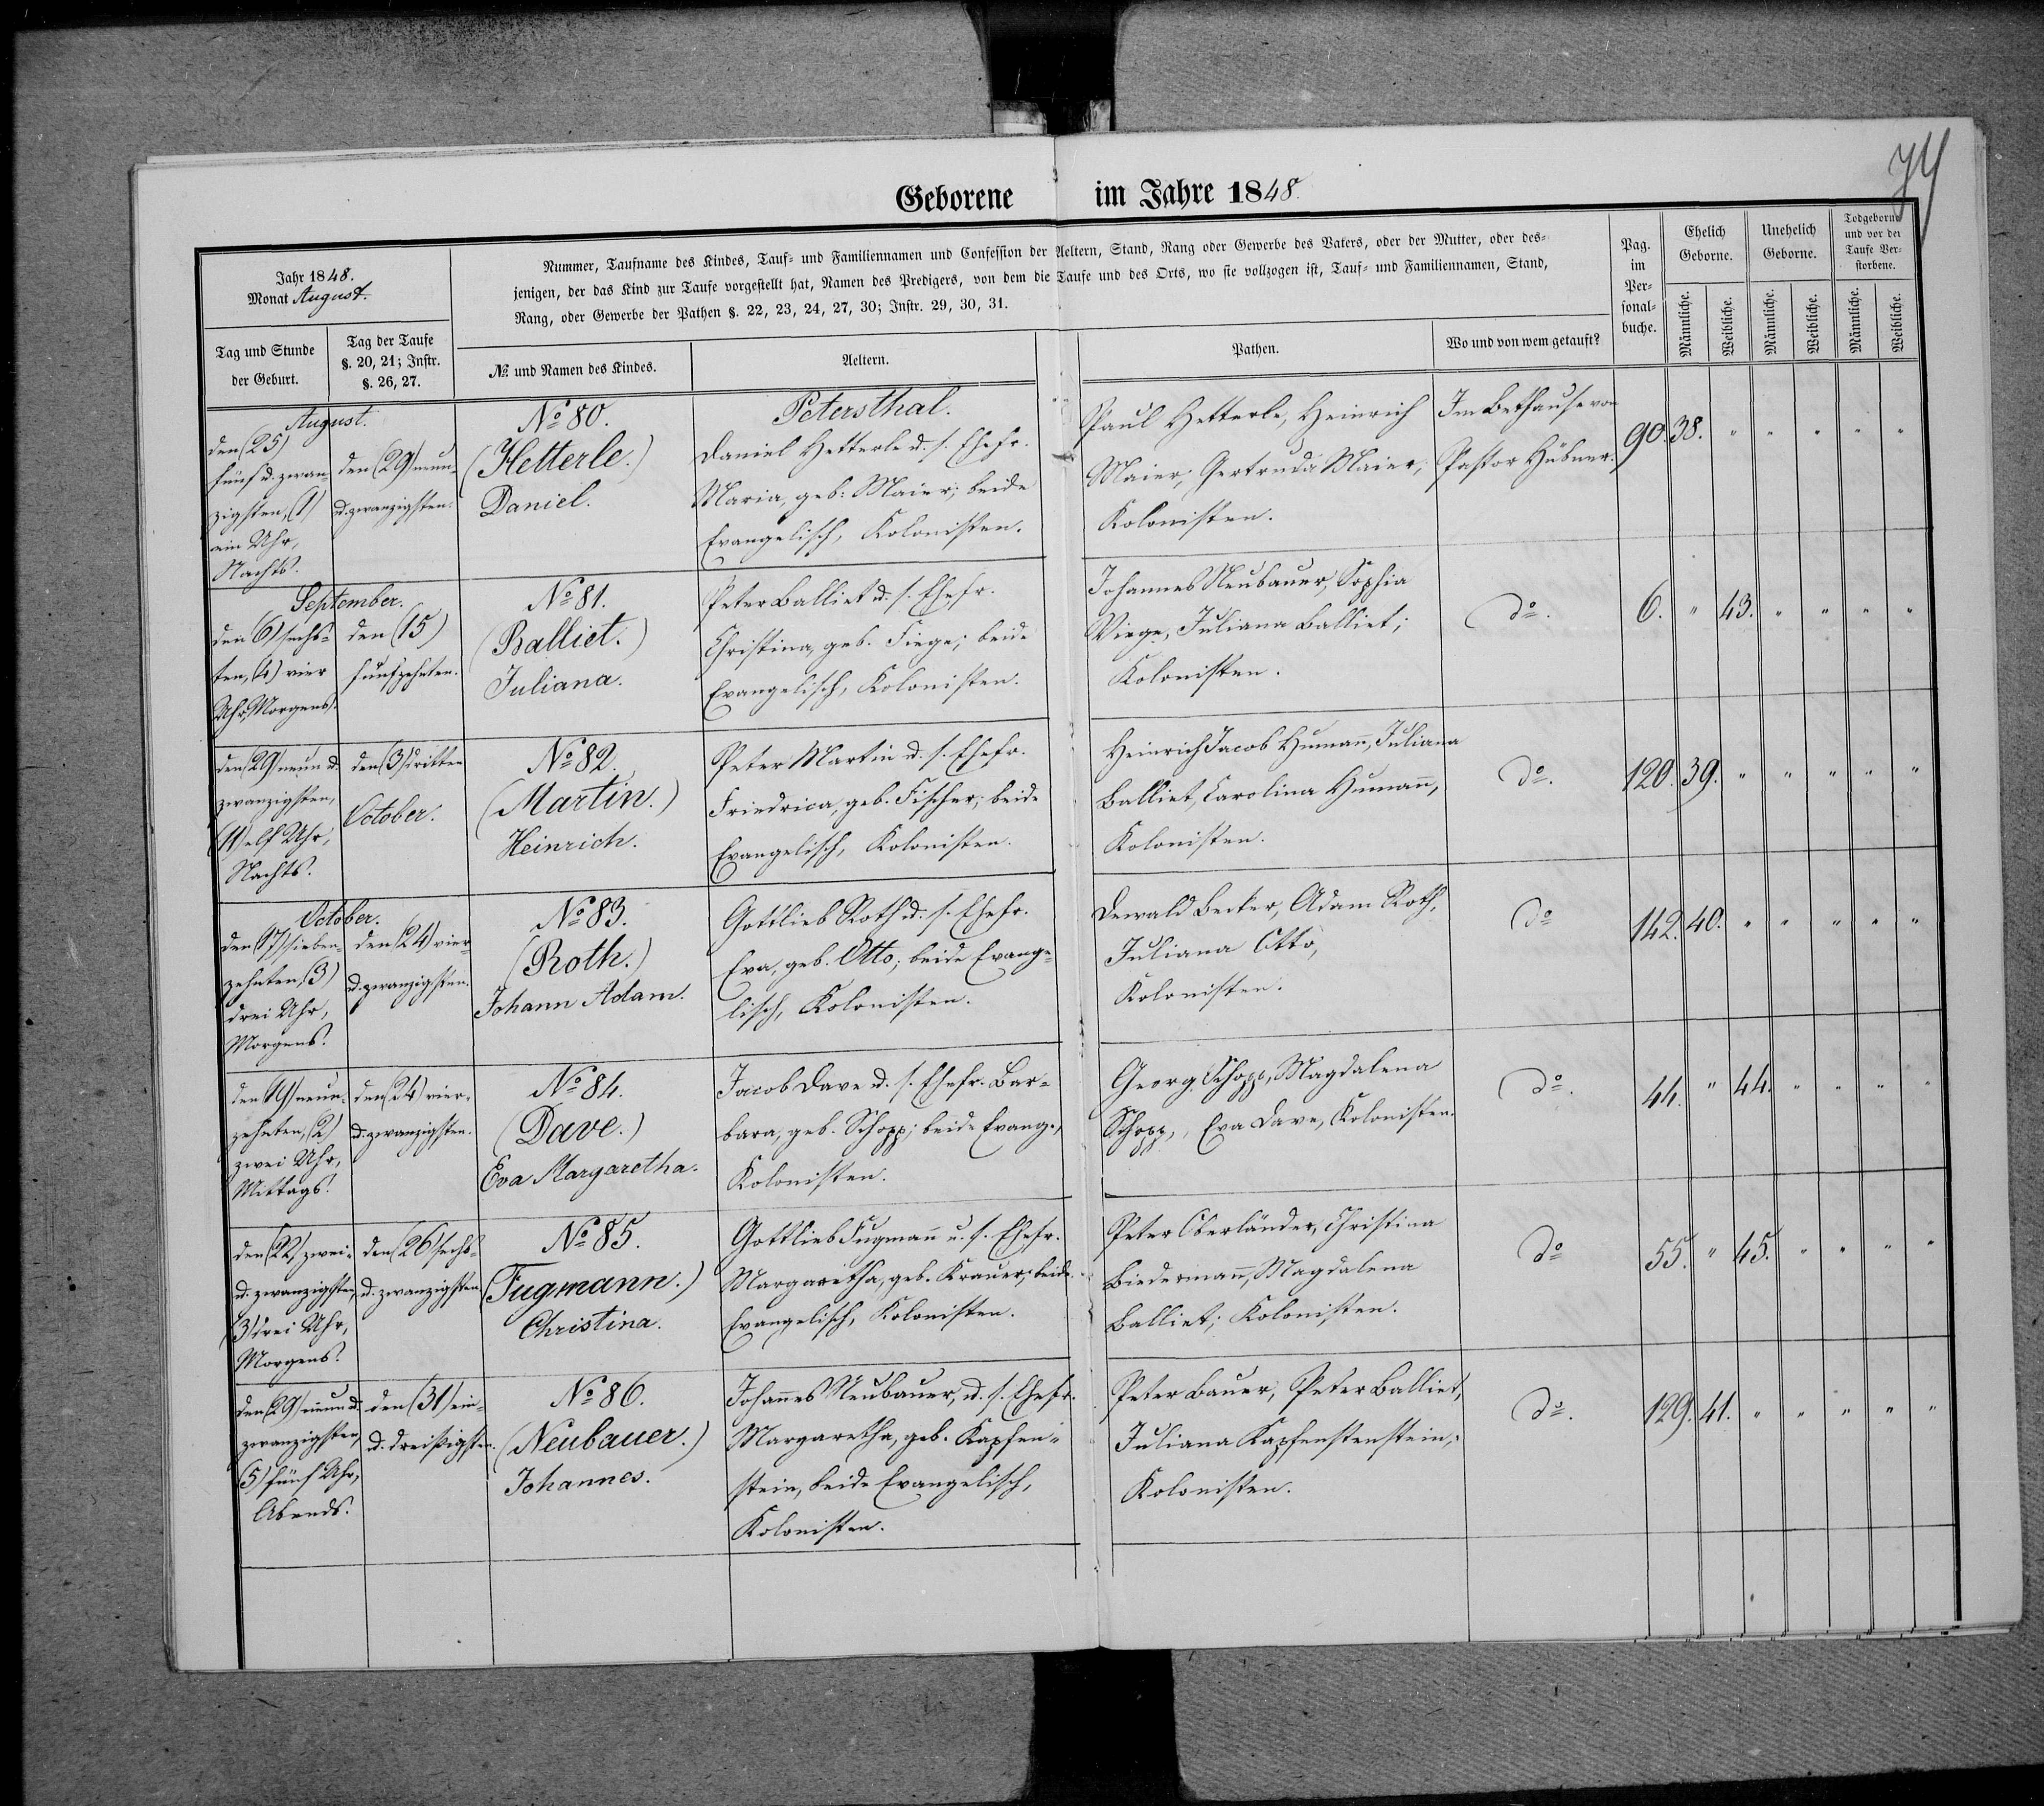 74
Geborene im Jahre 1848.
Jahr 1848.
Monat August.
Nummer, Taufname des Kindes, Tauf- und Familiennamen und Confession der Aeltern, Stand, Rang oder Gewerbe des Vaters, oder der Mutter, oder des-
jenigen, der das Kind zur Taufe vorgestellt hat, Namen des Predigers, von dem die Taufe und des Orts, wo sie vollzogen ist, Tauf- und Familiennamen, Stand,
Rang, oder Gewerbe der Pathen §. 22, 23, 24, 27, 30; Instr. 29, 30, 31.
Pag.
im
Per-
sonal-
buche.
Ehelich
Geborne.
Unehelich
Geborne.
Todgeborne
und vor der
Taufe Ver-
storbene.
Männliche.
Weibliche.
Männliche.
Weibliche.
Männliche.
Weibliche.
Tag und Stunde
der Geburt.
Tag der Taufe
§. 20, 21; Instr.
§. 26, 27.
No. und Namen des Kindes.
Aeltern.
Pathen.
Wo und von wem getauft?
August.
den (25)
fünf u. zwan-
zigsten, (1)
ein Uhr,
Nachts.
den (29) neun-
u. zwanzigsten.
No 80.
(Hetterle.)
Daniel.
Petersthal.
Daniel Hetterle u. s. Ehefr.
Maria, geb. Maier; beide
Evangelisch, Kolonisten.
Paul Hetterle, Heinrich
Maier, Gertruda Maier,
Kolonisten.
Im Bethause von
Pastor Hübner.
90. 38. " " " " "
September.
den (6) sechs-
ten, (4) vier
Uhr, Morgens.
den (15)
fünfzehnten.
No 81.
(Balliet.)
Juliana.
Peter Balliet u. s. Ehefr.
Christina, geb. Fiege; beide
Evangelisch, Kolonisten.
Johannes Neubauer, Sophia
Viege, Juliana Balliet;
Kolonisten.
do.
6. " 43. " " " "
den (29) neun u.
zwanzigsten,
(11) elf Uhr,
Nachts.
den (3) dritten
October.
No 82.
(Martin.)
Heinrich.
Peter Martin u. s. Ehefr.
Friedrica, geb. Fischer; beide
Evangelisch, Kolonisten.
Heinrich Jacob Humann, Juliana
Balliet, Carolina Humann,
Kolonisten.
do.
120. 39. " " " " "
October.
den (17) sieben-
zehnten, (3)
drei Uhr,
Morgens.
den (24) vier-
u. zwanzigsten.
No 83.
(Roth.)
Johann Adam.
Gottlieb Roth u. s. Ehefr.
Eva, geb. Otto; beide Evange-
lisch, Kolonisten.
Dewald Becker, Adam Roth,
Juliana Otto,
Kolonisten.
do
142. 40. " " " " "
den (19) neun-
zehnten, (2)
zwei Uhr,
Mittags.
den (24) vier-
u. zwanzigsten.
No 84.
(Dave.)
Eva Margaretha.
Jacob Dave u. s. Ehefr. Bar-
bara, geb. Schopp; beide Evang.,
Kolonisten.
Georg Schopp, Magdalena
Schopp, Eva Dave, Kolonisten.
do.
44. " 44. " " " "
den (22) zwei-
u. zwanzigsten,
(3) drei Uhr,
Morgens.
den (26) sechs-
u. zwanzigsten
No 85.
(Fugmann.)
Christina.
Gottlieb Fugmann u. s. Ehefr.
Margaretha, geb. Krauer; beide
Evangelisch, Kolonisten.
Peter Oberländer, Christina
Biedermann, Magdalena
Balliet; Kolonisten.
do
55. " 45. " " " "
den (29) neun u.
zwanzigsten,
(5) fünf Uhr,
Abends.
den (31) ein-
u. dreißigsten.
No 86.
(Neubauer.)
Johannes.
Johannes Neubauer, u. s. Ehefr.
Margaretha, geb. Kapfen-
stein, beide Evangelisch,
Kolonisten.
Peter Bauer, Peter Balliet,
Juliana Kapfenstenstein;
Kolonisten.
do.
129. 41. " " " " "